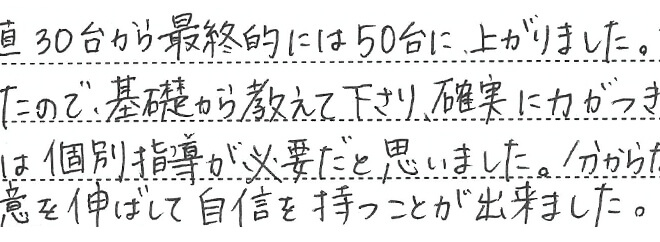 直30台から最終的には50台に、上がりました。
たので、基礎から教えて下さり、確実に力がつき
は個別指導が必要だと思いました。分からな
意を伸ばして自信を持つことが出来ました。